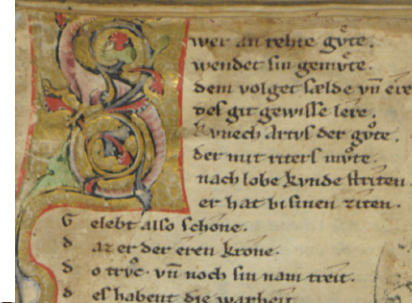 Swer an rehte gvͦte.
wendet sin gemvͦte.
dem volget sælde vn̄ ere
des git gewisse lere.
kvnech Artvs der gvͦte.
der mit riters mvͦte.
nach lobe kvnde striten.
er hat bi sinen ziten.
G elebt also schone.
d az er der eren krone.
d o trvͦc. vn̄ noch sin nam treit.
d es habent die warheit